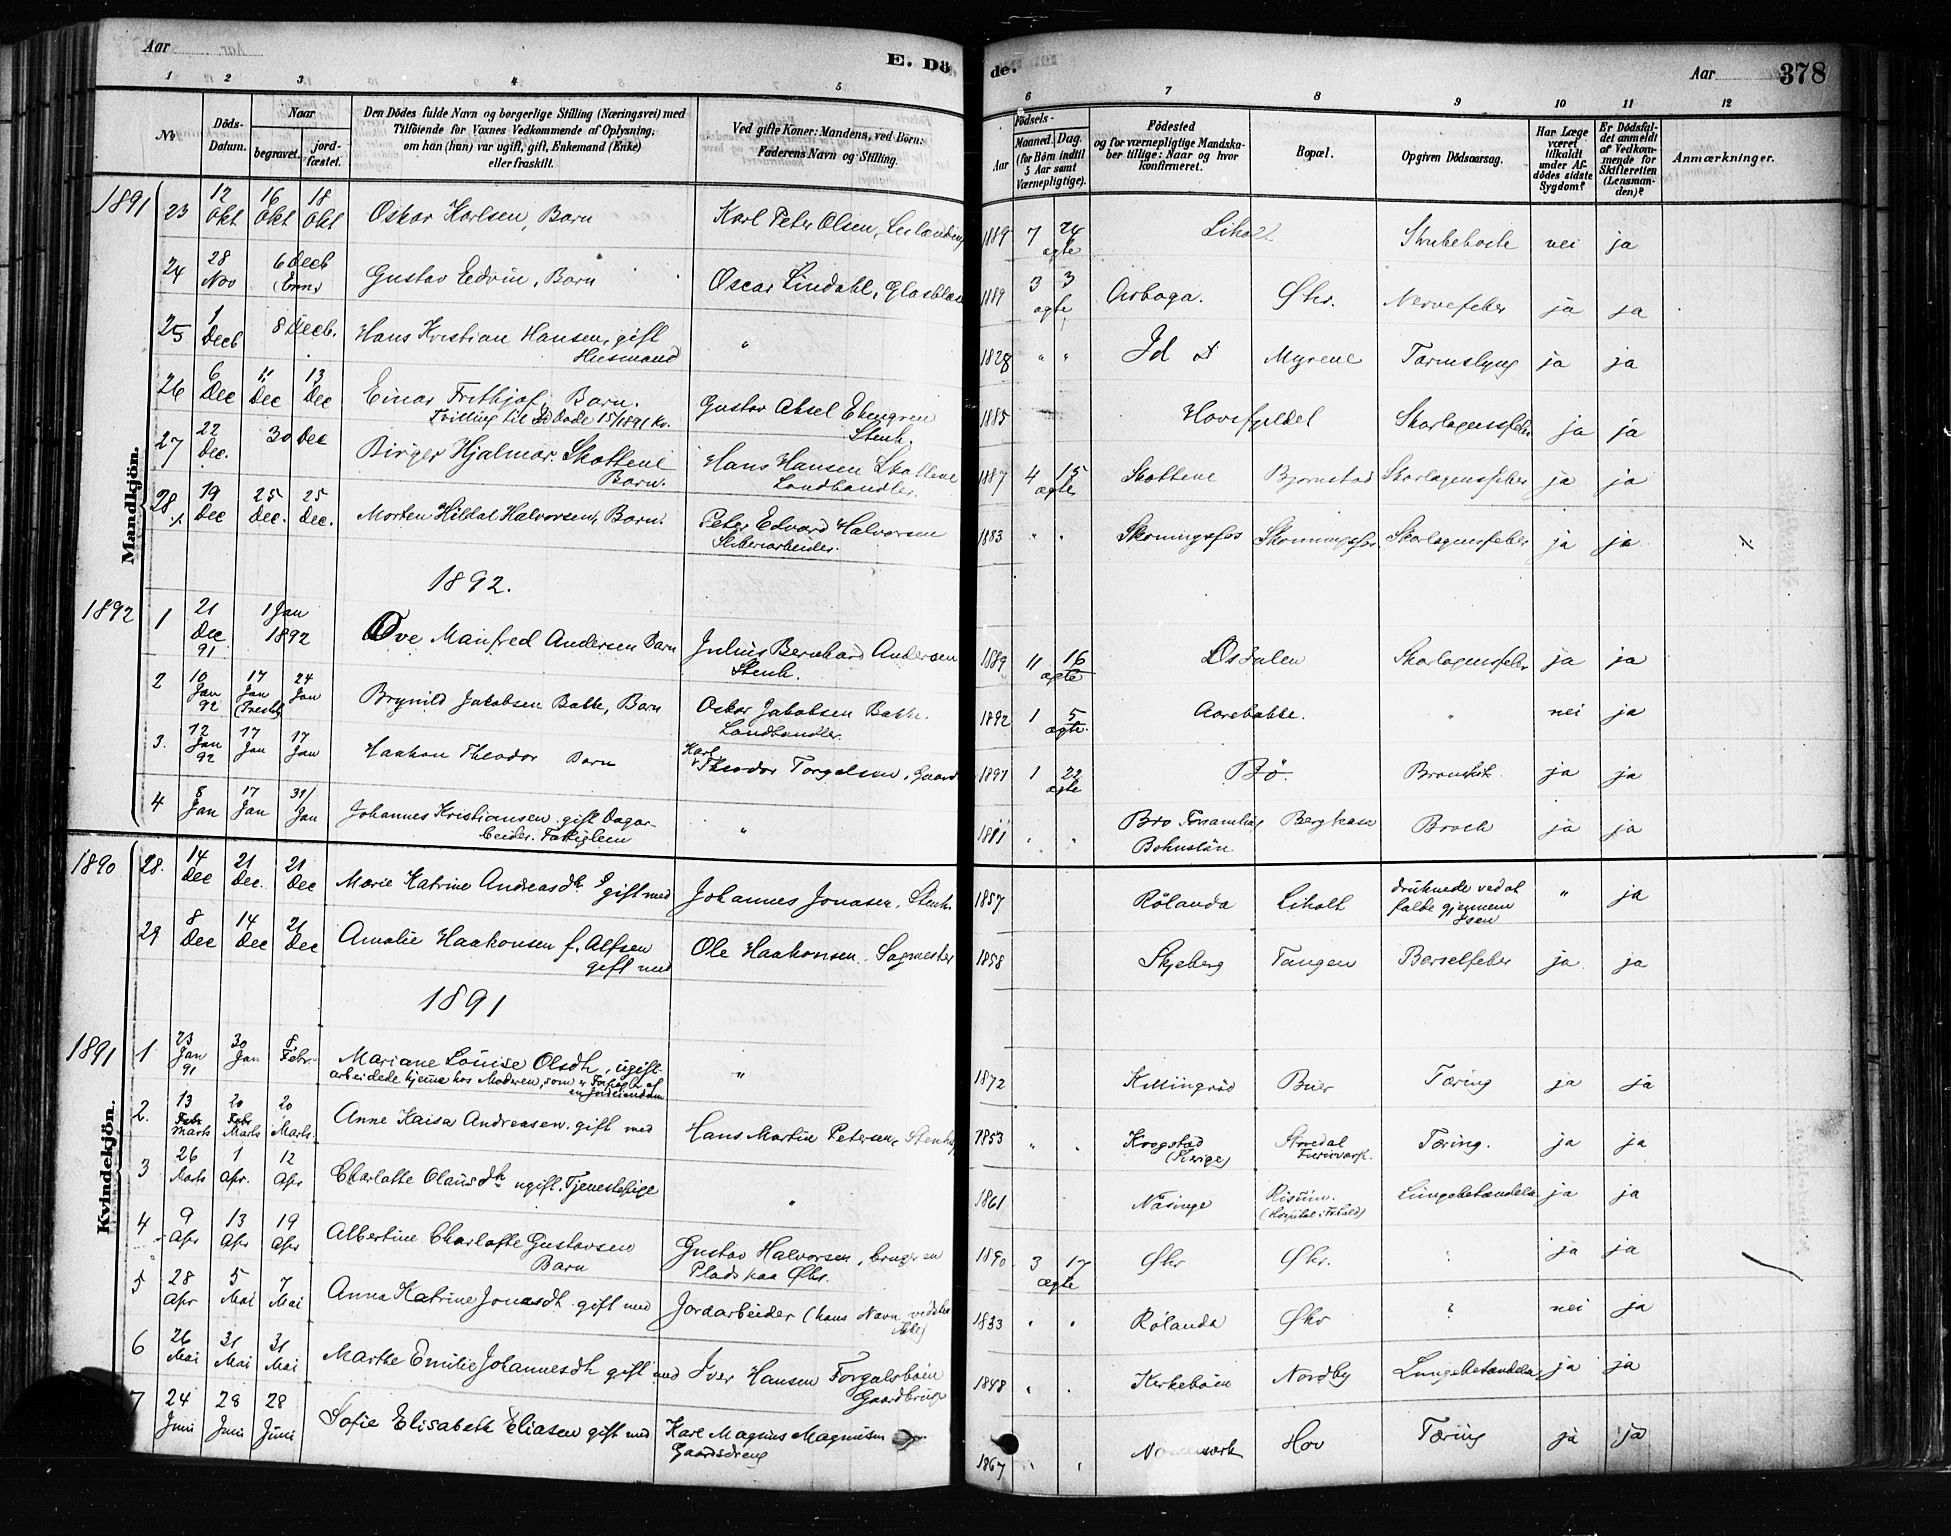 Aar
E. Dö
de.
Aar
378
1 2 3 4 5 6 7 8 9 10 11 12
No
Döds-
Datum.
Naar
begravet.
jord-
fæstet.
Den Dödes fulde Navn og borgerlige Stilling (Næringsvei) med
Tilföiende for Voxnes Vedkommende af Oplysning,
om han (hun) var ugift, gift, Enkemand (Enke)
eller fraskilt.
Ved gifte Koner: Mandens, ved Börn:
Faderens Navn og Stilling.
Födsels-
Aar
Maaned.
Dag.
(for Börn indtil
5 Aar samt
Værnepligtige).
Födested
og for værnepligtige Mandska-
ber tillige: Naar og hvor
konfirmeret.
Bopæl.
Opgiven Dödsaarsag.
Har Læge
været
tilkaldt
under Af-
dödes sidste
Sygdom?
Er Dödsfal-
det anmeldt
af Vedkom-
mende for
Skifteretten
(Lensman-
den)?
Anmærkninger.
Mandkjön.
1891 23 12 Okt 16 Okt 18 Okt Oskar Karlsen, Barn Karl Peter Olsen, 1889 7 24 ægte Liholt Strubehoste nei ja
24 28 Nov 6 Decb Gustav Edvin, Barn Oscar Lindahl, 1889 3 3 ægte Arboga. Øhr. Nervefeber ja ja
25 1 Decb 8 Decb. Hans Kristian Hansen, gift
Husmand " 1828 " " Id Myrene Tarmslyng ja ja
26 6 Dec 11 Dec 13 Dec Einar Frithjof, Barn.
Gustav Aksel
Stenh. 1885 Skarlagensfeber ja ja
27 22 Dec. 30 Dec Birger Hjalmar Skottene
Barn. Hans Hansen Skottene
Landhandler. 1887 4 15 ægte Skottene Bjørnstad Skarlagensfeber ja ja
28 19 Dec 25 Dec. 25 Dec. Morten Hildal Halvorsen, Barn. Peter Edvard Halvorsen
Sliberiarbeider. 1883 " " Skonningsfos Skonningsfos. Skarlagensfeber ja ja
1892.
1892 1 21 Dec 91 1 Jan 1892 Ove Manfred Andersen Barn Julius Bernhard Andersen
Stenh. 1889 11 16 ægte Skarlagensfeber ja ja
2 10 Jan 92 17 Jan 24 Jan Brynild Jakobsen Bakke, Barn Oskar Jakobsen Bakke.
Landhandler. 1892 1 5 ægte. Aarebakke. " nei ja
3. 12 Jan 92 17 Jan 17 Jan Haakon Theodor Barn Karl
Theodor Torgalsen, Gaard 1891 1 22 ægte Bö. Bronkit. ja ja
4 8 Jan 17 Jan 31/ Jan Johannes Kristiansen gift Dagar-
beider. Fattiglem " 1811 " " Bro Forsamling
Bohuslän Brock ja ja
Kvindekjön.
1890 28. 14 Dec 21 Dec. 21 Dec Marie Katrine Andreasdtr gift med Johannes Jonasen, Stenh. 1857 Rölanda Liholt druknede ved at
falde gjennem
Isen " ja
29 8 Dec 14 Dec 21 Dec Amalie Haakonsen f. Alfsen
gift med Ole Haakonsen. Sagmester 1858 Skjeberg Tangen Barselfeber ja ja
1891
1891 1. 23 Jan 91 30 Jan 8 Febr. Mariane Louise Olsdtr, ugift
arbeidede hjemme hos Moderen, som
" 1872 Killingröd Buer Tæring ja ja
2. 13 Febr Marts 20 Febr Marts 20 Marts. Anne Kaisa Andreasen. gift med Hans Martin Petersen, Stenh. 1853 " " Krogstad
(Sverige) Tæring. ja ja
3 26 Marts 1 Apr. 12 Apr Charlotte Olausdtr ugift. Tjenestepige " 1861 Näsinge Risum.
(Hospital i Frhald) Lungebetændelse ja ja
4 9 Apr 13 Apr 19 Apr Albertine Charlotte Gustavsen
Barn Gustav Halvorsen, bruger en
Plads paa Øhr. 1890 3 17 ægte Øhr Øhr. " ja ja
5 28 Apr 5 Mai 7 Mai Anna Katrine Jonasdtr. gift med Jordarbeider (hans Navn vides
ikke) 1833 " " Rölanda Øhr " nei ja
6 26 Mai 31 Mai 31 Mai Marthe Emilie Johannesdtr gift med Iver Hansen Torgalsböen
Gaardbruger 1848 " " Kirkeböen Nordby Lungebetændelse ja ja
7 24 Juni 28 Juni 28 Juni Sofie Elisabeth Eliasen gift med Karl Magnus Magnusen
Gaardsdreng 1867 " " Hov Tæring ja ja